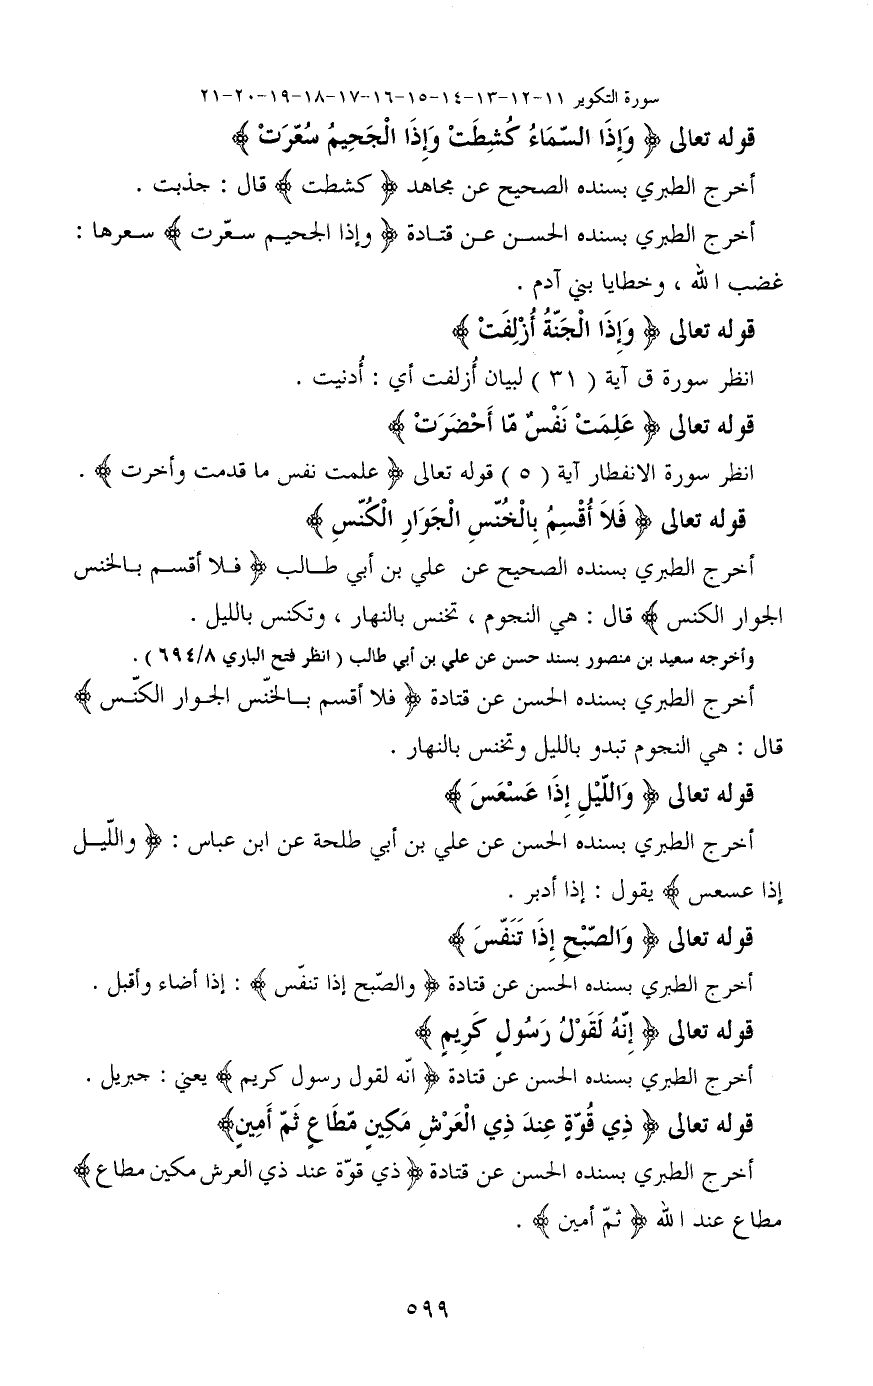 سورة التكوير ١١-١٢-١٣-١٤-١٥-١٦-١٧-١٨-١٩-٢٠-٢١
قوله تعالى ﴿ وَإِذَا السّمَاءُ كُشِطَتْ وَإِذَا الْجَحِيمُ سُعّرَتْ ﴾
أخرج الطبري بسنده الصحيح عن مجاهد ﴿ كشطت ﴾ قال : جذبت .
أخرج الطبري بسنده الحسن عن قتادة ﴿ وإذا الجحيم سعّرت ﴾ سعرها :
غضب الله ، وخطايا بني آدم .
قوله تعالى ﴿ وَإِذَا الْجَنّةُ أُزْلِفَتْ ﴾
انظر سورة ق آية ( ٣١ ) لبيان أُزلفت أي : أُدنيت .
قوله تعالى ﴿ عَلِمَتْ نَفْسٌ مّا أَحْضَرَتْ ﴾
انظر سورة الانفطار آية ( ٥ ) قوله تعالى ﴿ علمت نفس ما قدمت وأخرت ﴾ .
قوله تعالى ﴿ فَلاَ أُقْسِمُ بِالْخُنّسِ الْجَوَارِ الْكُنّسِ ﴾
أخرج الطبري بسنده الصحيح عن علي بن أبي طالب ﴿ فلا أقسم بالخنس
الجوار الكنس ﴾ قال : هي النجوم ، تخنس بالنهار ، وتكنس بالليل .
وأخرجه سعيد بن منصور بسند حسن عن علي بن أبي طالب ( انظر فتح الباري ٦٩٤/٨ ) .
أخرج الطبري بسنده الحسن عن قتادة ﴿ فلا أقسم بالخنّس الجوار الكنّس ﴾
قال : هي النجوم تبدو بالليل وتخنس بالنهار .
قوله تعالى ﴿ وَاللّيْلِ إِذَا عَسْعَسَ ﴾
أخرج الطبري بسنده الحسن عن علي بن أبي طلحة عن ابن عباس : ﴿ واللّيل
إذا عسعس ﴾ يقول : إذا أدبر .
قوله تعالى ﴿ وَالصّبْحِ إِذَا تَنَفّسَ ﴾
أخرج الطبري بسنده الحسن عن قتادة ﴿ والصّبح إذا تنفّس ﴾ : إذا أضاء وأقبل .
قوله تعالى ﴿ إِنّهُ لَقَوْلُ رَسُولٍ كَرِيمٍ ﴾
أخرج الطبري بسنده الحسن عن قتادة ﴿ انّه لقول رسول كريم ﴾ يعني : جبريل .
قوله تعالى ﴿ ذِي قُوّةٍ عِندَ ذِي الْعَرْشِ مَكِينٍ مّطَاعٍ ثَمّ أَمِينٍ﴾
أخرج الطبري بسنده الحسن عن قتادة ﴿ ذي قوّة عند ذي العرش مكين مطاع ﴾
مطاع عند الله ﴿ ثمّ أمين ﴾ .
٥٩٩